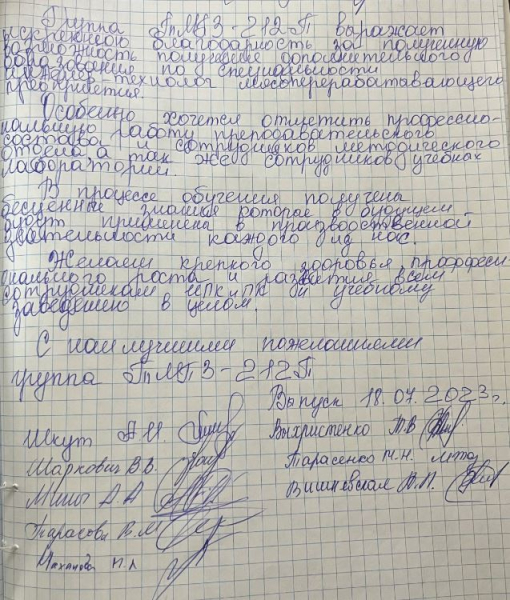 Группа ГпМПЗ-212П выражает
искреннюю благодарность за полученную
возможность получение дополнительного
образования по специальности
инженер технолог мясоперерабатывающего
предприятия.
Особенно хочется отметить профессио-
нальную работу преподавательского
состава, и сотрудников методического
отдела а так же сотрудников учебных
лабораторий.
В процессе обучения получены
бесценные знания которые в будущем
будут применена в производственной
деятельности каждого из нас.
Желаем крепкого здоровья профессио-
нального роста и развития всем
сотрудникам ИПКиПК и учебному
заведению в целом.
С наилучшими пожеланиями
группа ГпМПЗ-212П
Выпуск 18.07.2023г.
Шкут А.И.
Выхристенко Т.В.
Шаркович В.В.
Тарасенко Т.Н.
А.А.
Вишневская Н.П.
Тарасова В.М.